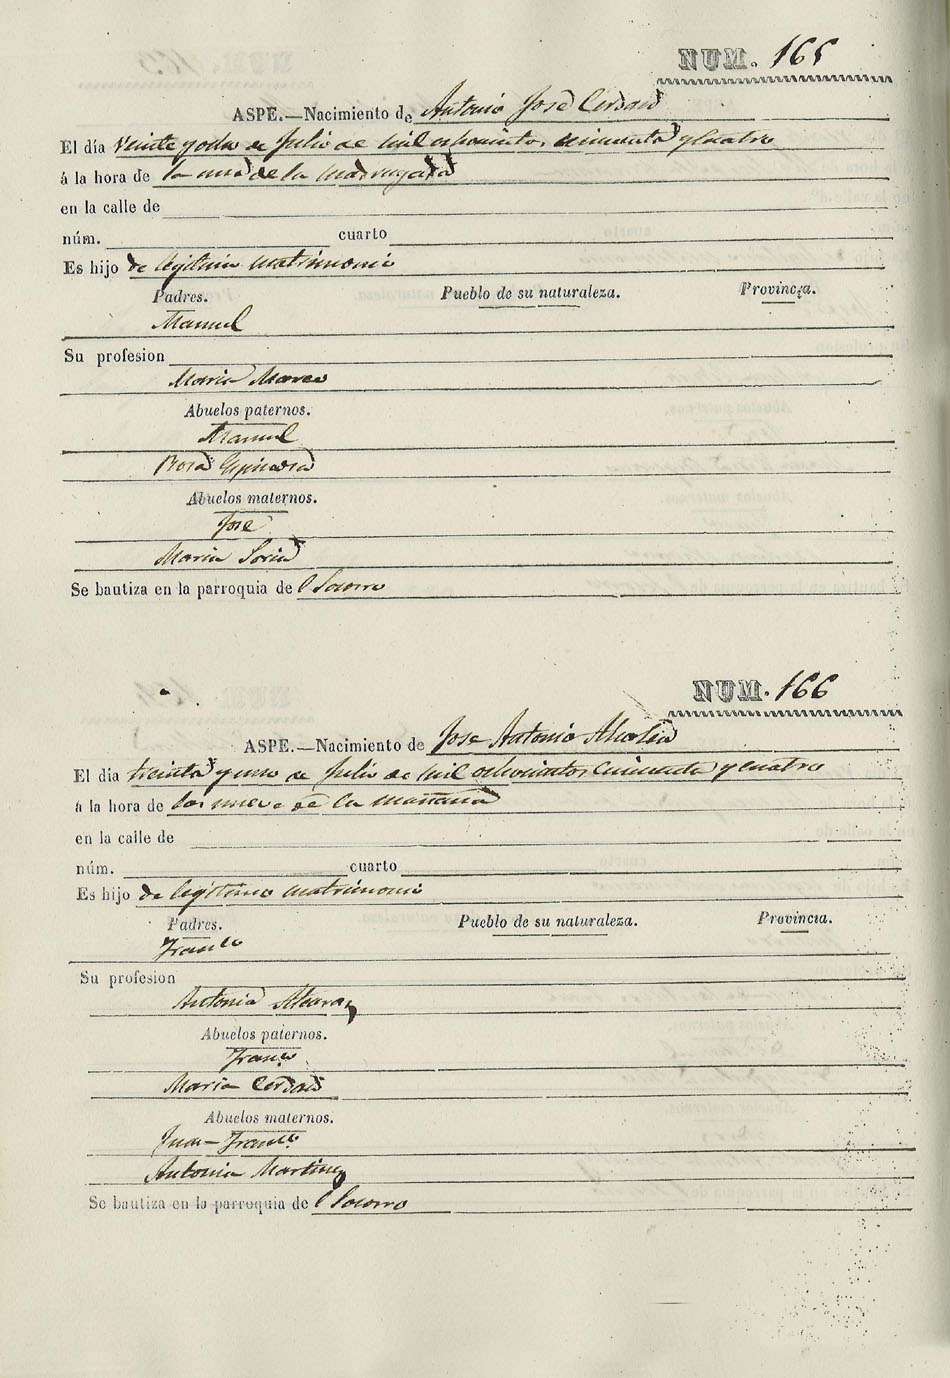 NUM. 165
ASPE.—Nacimiento de Antonio José Cerdan
El día veinte y ocho de Julio de mil ochocientos cincuenta y cuatro
á la hora de la una de la madrugada
en la calle de
núm. cuarto
Es hijo de legitimo matrimonio
Padres. Pueblo de su naturaleza. Provincia.
Manuel
Su profesion
Maria Marco
Abuelos paternos.
Manuel
Rosa Espinosa
Abuelos maternos.
Jose
Maria Soria
Se bautiza en la parroquia de l Socorro
NUM. 166
ASPE.—Nacimiento de Jose Antonio
El día treinta y uno de Julio de mil ochocientos cincuenta y cuatro
á la hora de las nueve de la mañana
en la calle de
núm. cuarto
Es hijo de legitimo matrimonio
Padres. Pueblo de su naturaleza. Provincia.
Franco
Su profesion
Antonia
Abuelos paternos.
Franco
Maria Cerdan
Abuelos maternos.
Juan Franco
Antonia Martinez
Se bautiza en la parroquia de l Socorro